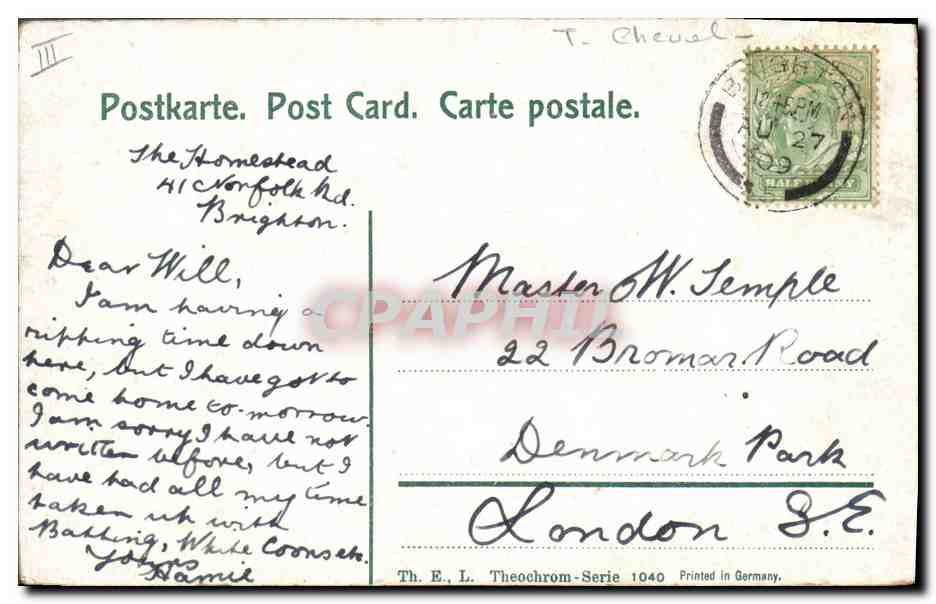 III
T. Cheval -
Postkarte. Post Card. Carte postale.
BRIGHTON
12 15 PM
AU 27
09
HALF PENNY
The Homestead
41 Norfolk Rd.
Brighton.
Dear Will,
I am having a
ripping time down
here, but I have got to
come home to-morrow.
I am sorry I have not
written before, but I
have had all my time
taken up with
Bathing, White Coons etc.
Yours
Hamie
Master W. Temple
22 Bromar. Road
Denmark Park
London S.E.
CPAPHIL
Th. E., L. Theochrom-Serie 1040 Printed in Germany.